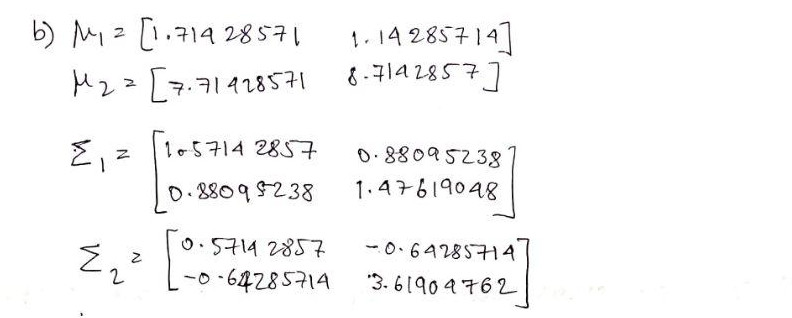 b) μ₁ = [1.71428571 1.14285714]
μ₂ = [7.71428571 8.7142857]
Σ₁ = [1.57142857 0.88095238
0.88095238 1.47619048]
Σ₂ = [0.57142857 -0.64285714
-0.64285714 3.61904762]